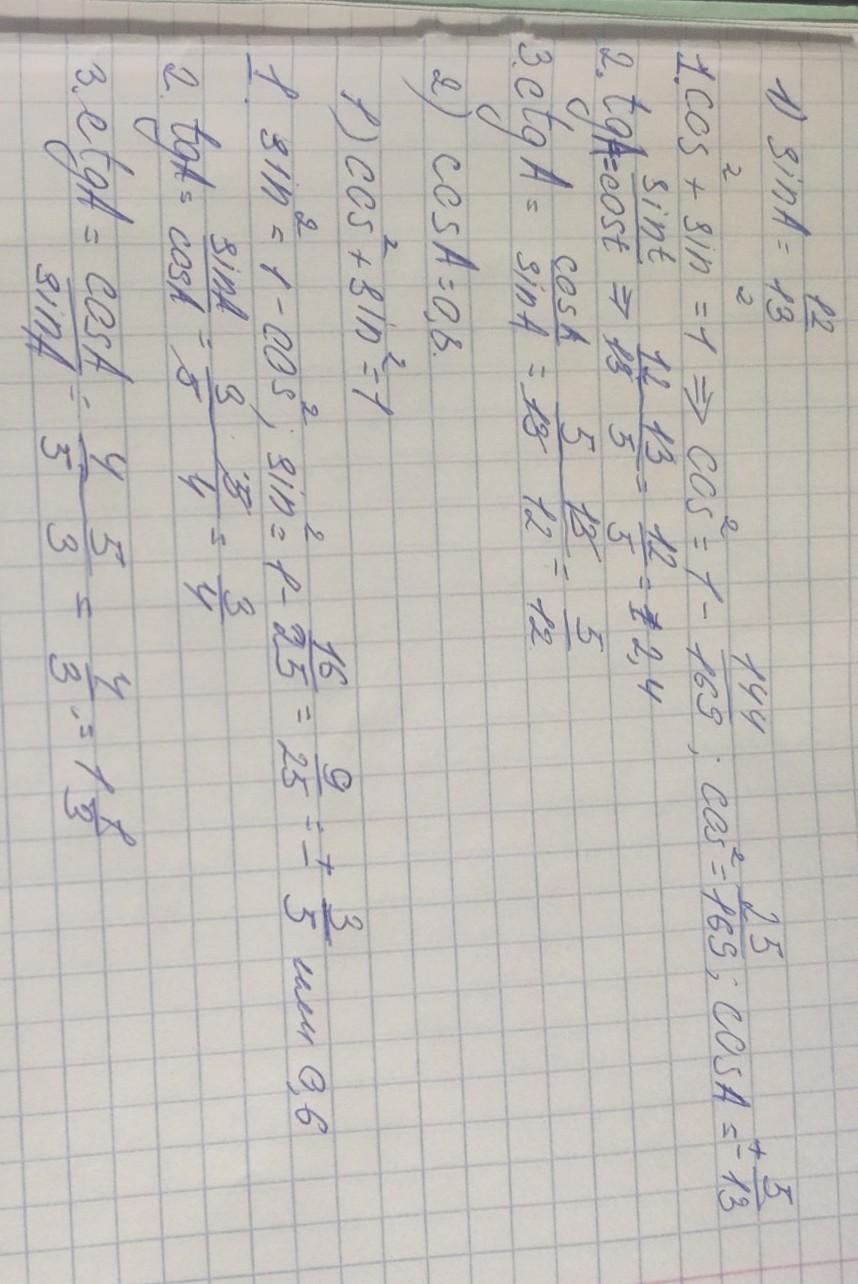 1) sinA = 12/13
1. cos² + sin² = 1 ⇒ cos² = 1 - 144/169; cos² = 25/169; cosA = ± 5/13
2. tgA = sint/cost ⇒ 12/13 · 13/5 = 12/5 = 2,4
3. ctgA = cosA/sinA = 5/13 · 13/12 = 5/12
2) cosA = 0,8.
1) cos² + sin² = 1
1. sin² = 1 - cos²; sin² = 1 - 16/25 = 9/25 = ± 3/5 или 0,6
2. tgA = sinA/cosA = 3/5 · 5/4 = 3/4
3. ctgA = cosA/sinA = 4/5 · 5/3 = 4/3 = 1 1/3